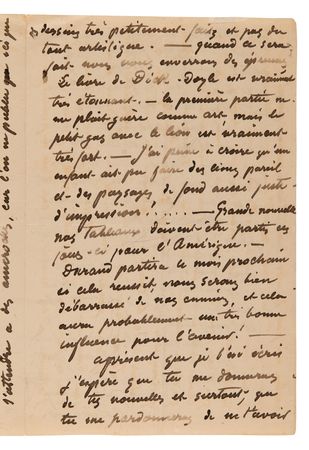 dessins très petitement faits et pas du
tout artistique. — quand ce sera
fait nous vous enverrons des épreuves
Le livre de Dick Doyle est vraiment
très étonnant. — la première partie ne
me plait guère comme art mais le
petit gas avec le bois est vraiment
très fort. — J'ai peine à croire qu'un
enfant ait pu faire des lions pareil
et des paysages de fond aussi juste
d'impressions! . . . . . — Grande nouvelle
nos tableaux doivent être partis ces
jours-ci pour l'Amérique. —
Durand partira le mois prochain
si cela reussit nous serons bien
débarrassé de nos ennuies, et cela
aura probablement un très bonne
influence pour l'avenir! —
apresent que je t'ai écris
j'espère que tu me donneras
de tes nouvelles et surtout, que
tu me pardonneras de ne t'avoir
s'attendre a des
car l'on ne publie que